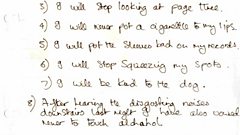 3) I will stop looking at page three.
4) I will never put a cigarette to my lips.
5) I will put the sleeves back on my records.
6) I will stop squeezing my spots.
7) I will be kind to the dog.
8) After hearing the disgusting noises
downstairs last night I have also vowed
never to touch alchahol.